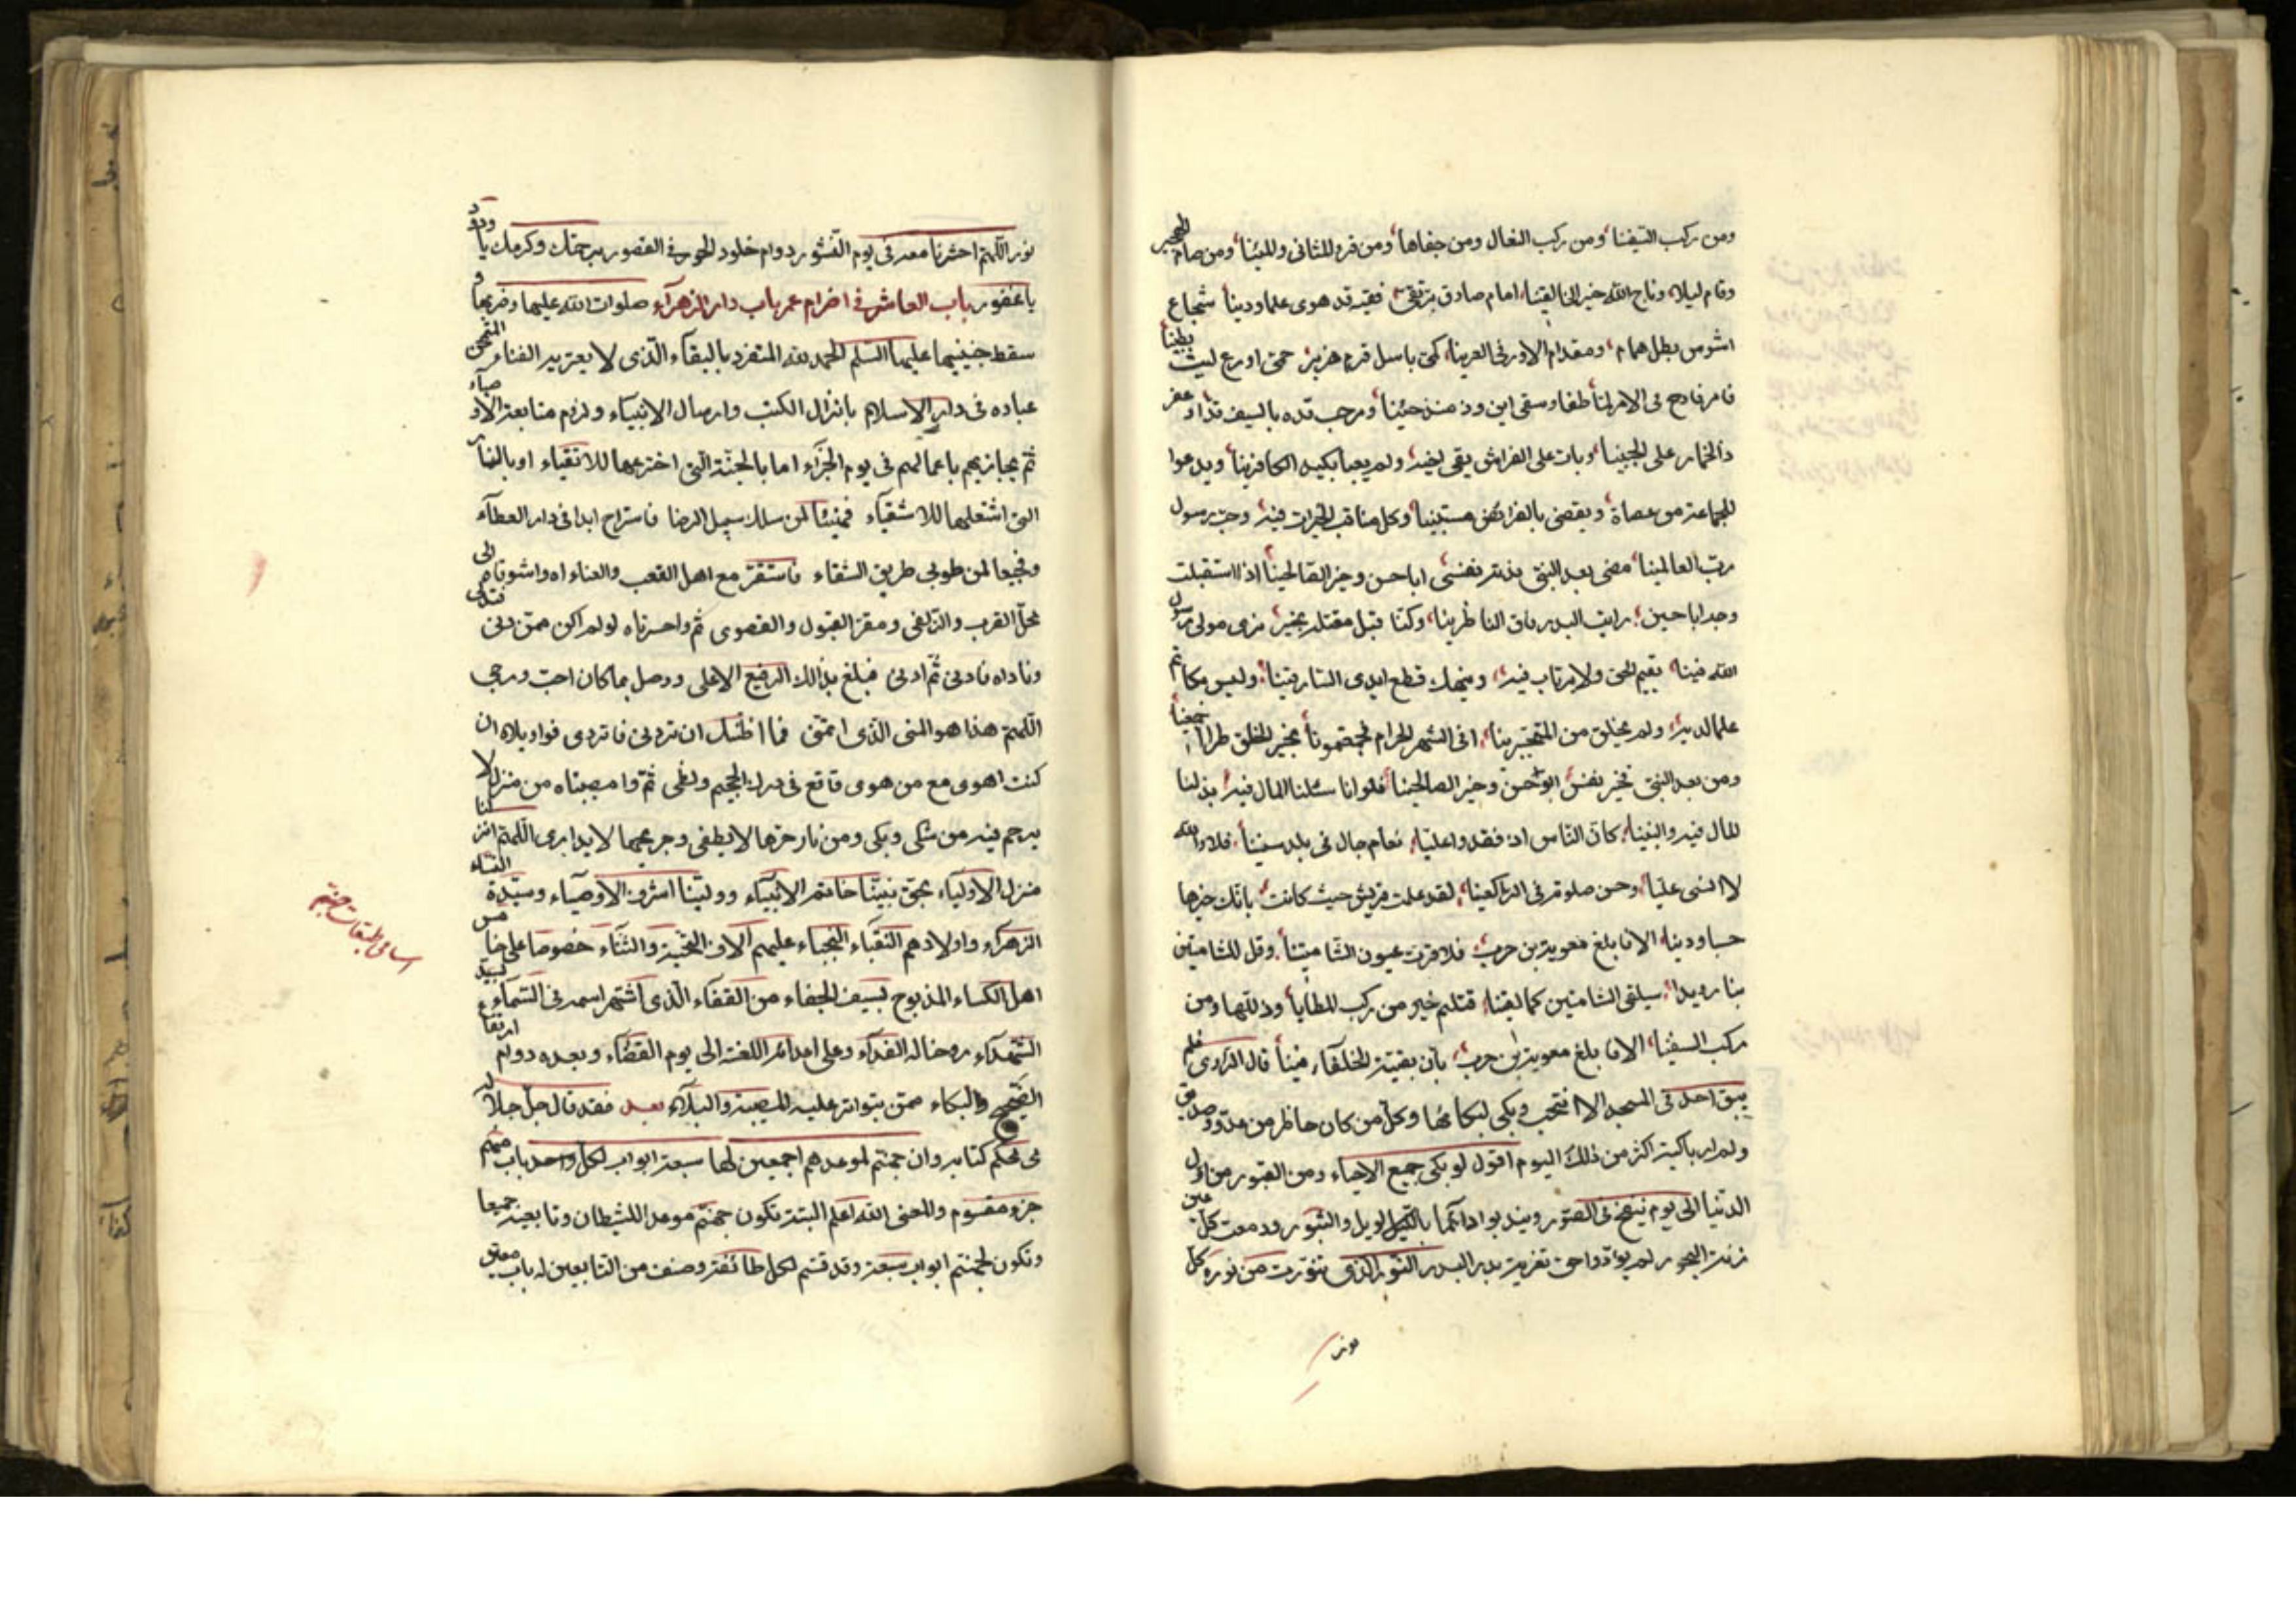 ومن ركب السفينا ومن ركب النعال ومن حفاها ومن قرء المثاني والمئينا ومن صام الهجير
وقام ليلا وناج الله خير الخالقينا امام صادق بر تقي فقيه قد حوى علما ودينا شجاع
اشوس بطل همام ومقدام الاور في العرينا كمي باسل قرم هزبر حمي اورع ليث بطينا
في الامر لما طغا وسقى ابن ود منه حينا ومرحب قده بالسيف قدا وعفر
ذا الخمار على الجبينا وبات على الفراش يقي اخيه ولم يعبأ بكيد الكافرينا ويدعوا
للجماعة من عصاه ويقضي بالفرائض مستبينا وكل مناقب الخيرات فيه وحب رسول
رب العالمينا مضى بعد النبي فدته نفسي ابا حسن وخير الصالحينا اذا استقبلت
وجه ابا حسين رايت البدر فاق الناظرينا وكنا قبل مقتله بخير نرى مولى رسول
الله فينا يقيم الحق ولا يرتاب فيه وينهك قطع ايدى السارقينا وليس بكاتم
علما لديه ولم يخلق من المتجبرينا افي الشهر الحرام فجعتمونا بخير الخلق طرا اجمعينا
ومن بعد النبي فخير نفس ابو حسن وخير الصالحينا فلو انا سئلنا المال فيه بذلنا
المال فيه والبنينا كان الناس اذ فقدوا عليا نعام جال في بلد سنينا فلا والله
لا انسى عليا وحسن صلوته في الراكعينا لقد علمت قريش حيث كانت بانك خيرها
حسبا ودينا الا فابلغ معوية بن حرب فلا قرت عيون الشامتينا وقل للشامتين
بنا رويدا سيلقى الشامتين كما لقينا قتلتم خير من ركب المطايا وذللها ومن
ركب السفينا الا فابلغ معوية بن حرب بان بقية الخلفاء فينا قال الراوي فلم
يبق احد في المسجد الا انتحب وبكى لبكائها وكل من كان حاظر من عدو وصديق
ولم ار باكية اكثر من ذلك اليوم اقول لو بكى جميع الاحياء ومن القبور من اول
الدنيا الى يوم ينفخ في الصور ويندبوا دائما بالويل والثبور ودمعت كل عين
البحور لم يؤدوا حق تعزية بدر البدر النور الذي تنورت من نوره كل
نور
نور اللهم احشرنا معه في يوم النشور دوام خلود الحور في القصور برحمتك وكرمك يا ودود
يا غفور باب العاشر في اضرام عمر باب دار الزهراء صلوات الله عليها وضربها و
سقط جنينها عليها السلم الحمد لله المتفرد بالبقاء الذى لا يعتريه الفناء الممتحن
عباده في دار الاسلام بانزال الكتب وارسال الانبياء ولزم متابعة الاوصياء
ثم يجازيهم باعمالهم في يوم الجزاء اما بالجنة التي اخترعها للاتقياء او بالنار
التي اشتعلها للاشقياء فهنيئا لمن سلك سبيل الرضا فاستراح ابدا في دار العطاء
وفجيعا لمن طوى طريق الشقاء فاستقر مع اهل التعب والعناء اه واشوقاه الى
محل القرب والزلفى ومقر القبول والقصوى ثم واحسرتاه لو لم اكن ممن دنى فتدلى
وناداه فادنى ثم ادنى فبلغ بذلك الرفيع الاعلى ووصل بما كان احب ورجى
اللهم هذا هو المنى الذى اتمنى فما اظنك ان تردني فاتردى فواويلاه ان
كنت اهوى مع من هوى فاقع في درك الجحيم ولظى ثم وامصيبتاه من منزل لا
يرحم فيه من شكى وبكى ومن نار حرها لا يطفى وجريحها لا يداوى اللهم انزلنا
منزل الاولياء بحق نبينا خاتم الانبياء وولينا اشرف الاوصياء وسيدة النساء
الزهراء واولادهم النقباء النجباء عليهم الاف التحية والثناء خصوصا على خامس
اهل الكساء المذبوح بسيف الجفاء من القفاء الذى اشتهر اسمه في السماء بسيد
الشهداء روحنا له الفداء وعلى اعدائه اللعنة الى يوم القضاء وبعده دوام ارتفاع
الضجيج والبكاء ممن يتواتر عليه المصيبة والبلاء بعد فقد قال جل جلاله
في محكم كتابه وان جهنم لموعدهم اجمعين لها سبعة ابواب لكل واحد باب منهم
جزء مقسوم والمعنى الله اعلم البتة تكون جهنم موعد للشيطان وتابعيه جميعا
وتكون لجهنم ابواب سبعة وقد قسم لكل طائفة وصنف من التابعين له باب معين
اسامي طبقات جهنم